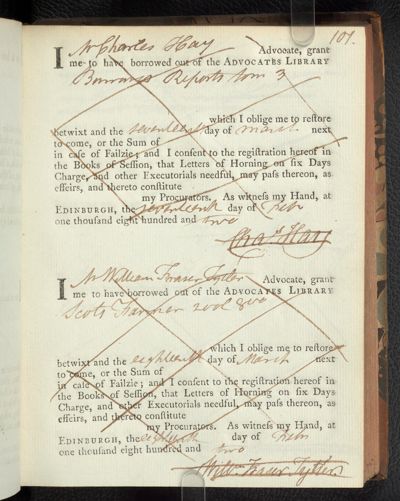 101.
I Mr Charles Hay Advocate, grant
me to have borrowed out of the ADVOCATES LIBRARY
Burrows Reports tom 3
which I oblige me to reſtore
betwixt and the seventeenth day of March next
to come, or the Sum of
in caſe of Failzie; and I conſent to the regiſtration hereof in
the Books of Seſſion, that Letters of Horning on ſix Days
Charge, and other Executorials needful, may paſs thereon, as
effeirs, and thereto conſtitute
my Procurators. As witneſs my Hand, at
EDINBURGH, the seventeenth day of Febr
one thouſand eight hundred and two
Chas Hay
I Mr William Fraser Tytler Advocate, grant
me to have borrowed out of the ADVOCATES LIBRARY
Scots Farmer 2 vol 8vo
which I oblige me to reſtore
betwixt and the eighteenth day of March next
to come, or the Sum of
in caſe of Failzie; and I conſent to the regiſtration hereof in
the Books of Seſſion, that Letters of Horning on ſix Days
Charge, and other Executorials needful, may paſs thereon, as
effeirs, and thereto conſtitute
my Procurators. As witneſs my Hand, at
EDINBURGH, the eighteenth day of Febr
one thouſand eight hundred and two
Willm Fraser Tytler